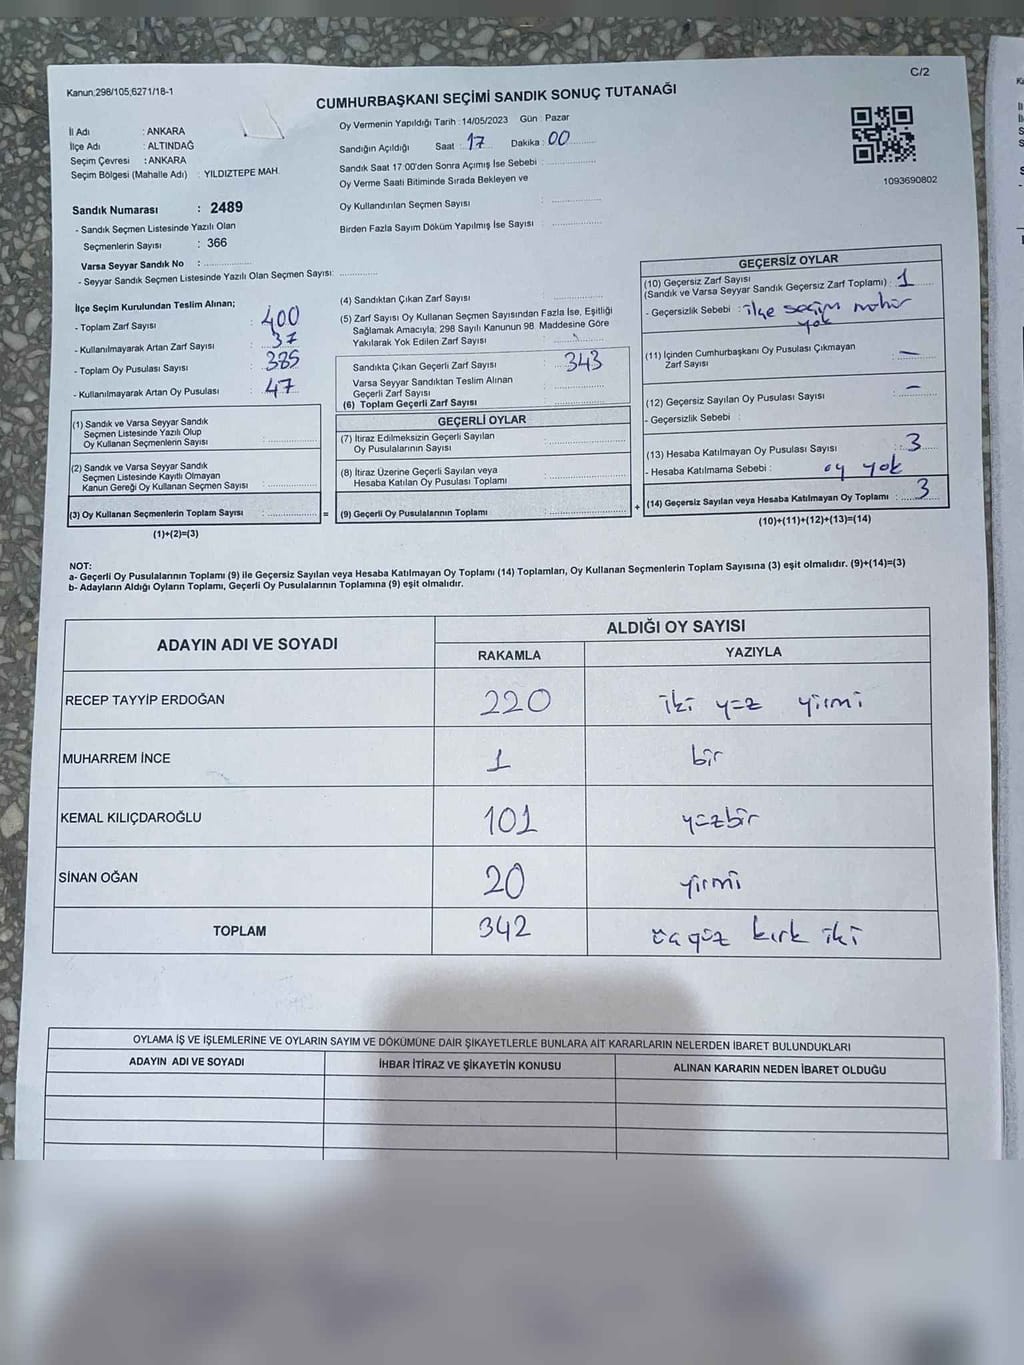 C/2
Kanun;298/105;6271/18-1
CUMHURBAŞKANI SEÇİMİ SANDIK SONUÇ TUTANAĞI
İl Adı : ANKARA
İlçe Adı : ALTINDAĞ
Seçim Çevresi : ANKARA
Seçim Bölgesi (Mahalle Adı) : YILDIZTEPE MAH.
Oy Vermenin Yapıldığı Tarih : 14/05/2023 Gün : Pazar
Sandığın Açıldığı Saat : 17 Dakika : 00
Sandık Saat 17:00'den Sonra Açımış İse Sebebi :
Oy Verme Saati Bitiminde Sırada Bekleyen ve
Oy Kullandırılan Seçmen Sayısı :
Birden Fazla Sayım Döküm Yapılmış İse Sayısı :
1093690802
Sandık Numarası : 2489
- Sandık Seçmen Listesinde Yazılı Olan
Seçmenlerin Sayısı : 366
Varsa Seyyar Sandık No :
- Seyyar Sandık Seçmen Listesinde Yazılı Olan Seçmen Sayısı:
İlçe Seçim Kurulundan Teslim Alınan;
- Toplam Zarf Sayısı : 400
- Kullanılmayarak Artan Zarf Sayısı : 37
- Toplam Oy Pusulası Sayısı : 385
- Kullanılmayarak Artan Oy Pusulası : 47
(1) Sandık ve Varsa Seyyar Sandık
Seçmen Listesinde Yazılı Olup
Oy Kullanan Seçmenlerin Sayısı :
(2) Sandık ve Varsa Seyyar Sandık
Seçmen Listesinde Kayıtlı Olmayan
Kanun Gereği Oy Kullanan Seçmen Sayısı :
(3) Oy Kullanan Seçmenlerin Toplam Sayısı : =
(1)+(2)=(3)
(4) Sandıktan Çıkan Zarf Sayısı :
(5) Zarf Sayısı Oy Kullanan Seçmen Sayısından Fazla İse, Eşitliği
Sağlamak Amacıyla; 298 Sayılı Kanunun 98. Maddesine Göre
Yakılarak Yok Edilen Zarf Sayısı :
Sandıkta Çıkan Geçerli Zarf Sayısı : 343
Varsa Seyyar Sandıktan Teslim Alınan
Geçerli Zarf Sayısı :
(6) Toplam Geçerli Zarf Sayısı :
GEÇERLİ OYLAR
(7) İtiraz Edilmeksizin Geçerli Sayılan
Oy Pusulalarının Sayısı :
(8) İtiraz Üzerine Geçerli Sayılan veya
Hesaba Katılan Oy Pusulası Toplamı :
(9) Geçerli Oy Pusulalarının Toplamı : +
GEÇERSİZ OYLAR
(10) Geçersiz Zarf Sayısı
(Sandık ve Varsa Seyyar Sandık Geçersiz Zarf Toplamı) : 1
- Geçersizlik Sebebi : ilçe seçim mühür
yok
(11) İçinden Cumhurbaşkanı Oy Pusulası Çıkmayan
Zarf Sayısı : —
(12) Geçersiz Sayılan Oy Pusulası Sayısı : —
- Geçersizlik Sebebi :
(13) Hesaba Katılmayan Oy Pusulası Sayısı : 3
- Hesaba Katılmama Sebebi : oy yok
(14) Geçersiz Sayılan veya Hesaba Katılmayan Oy Toplamı : 3
(10)+(11)+(12)+(13)=(14)
NOT:
a- Geçerli Oy Pusulalarının Toplamı (9) ile Geçersiz Sayılan veya Hesaba Katılmayan Oy Toplamı (14) Toplamları, Oy Kullanan Seçmenlerin Toplam Sayısına (3) eşit olmalıdır. (9)+(14)=(3)
b- Adayların Aldığı Oyların Toplamı, Geçerli Oy Pusulalarının Toplamına (9) eşit olmalıdır.
ADAYIN ADI VE SOYADI
ALDIĞI OY SAYISI
RAKAMLA YAZIYLA
RECEP TAYYİP ERDOĞAN 220 iki yüz yirmi
MUHARREM İNCE 1 bir
KEMAL KILIÇDAROĞLU 101 yüzbir
SİNAN OĞAN 20 yirmi
TOPLAM 342 üçyüz kırk iki
OYLAMA İŞ VE İŞLEMLERİNE VE OYLARIN SAYIM VE DÖKÜMÜNE DAİR ŞİKAYETLERLE BUNLARA AİT KARARLARIN NELERDEN İBARET BULUNDUKLARI
ADAYIN ADI VE SOYADI İHBAR İTİRAZ VE ŞİKAYETİN KONUSU ALINAN KARARIN NEDEN İBARET OLDUĞU